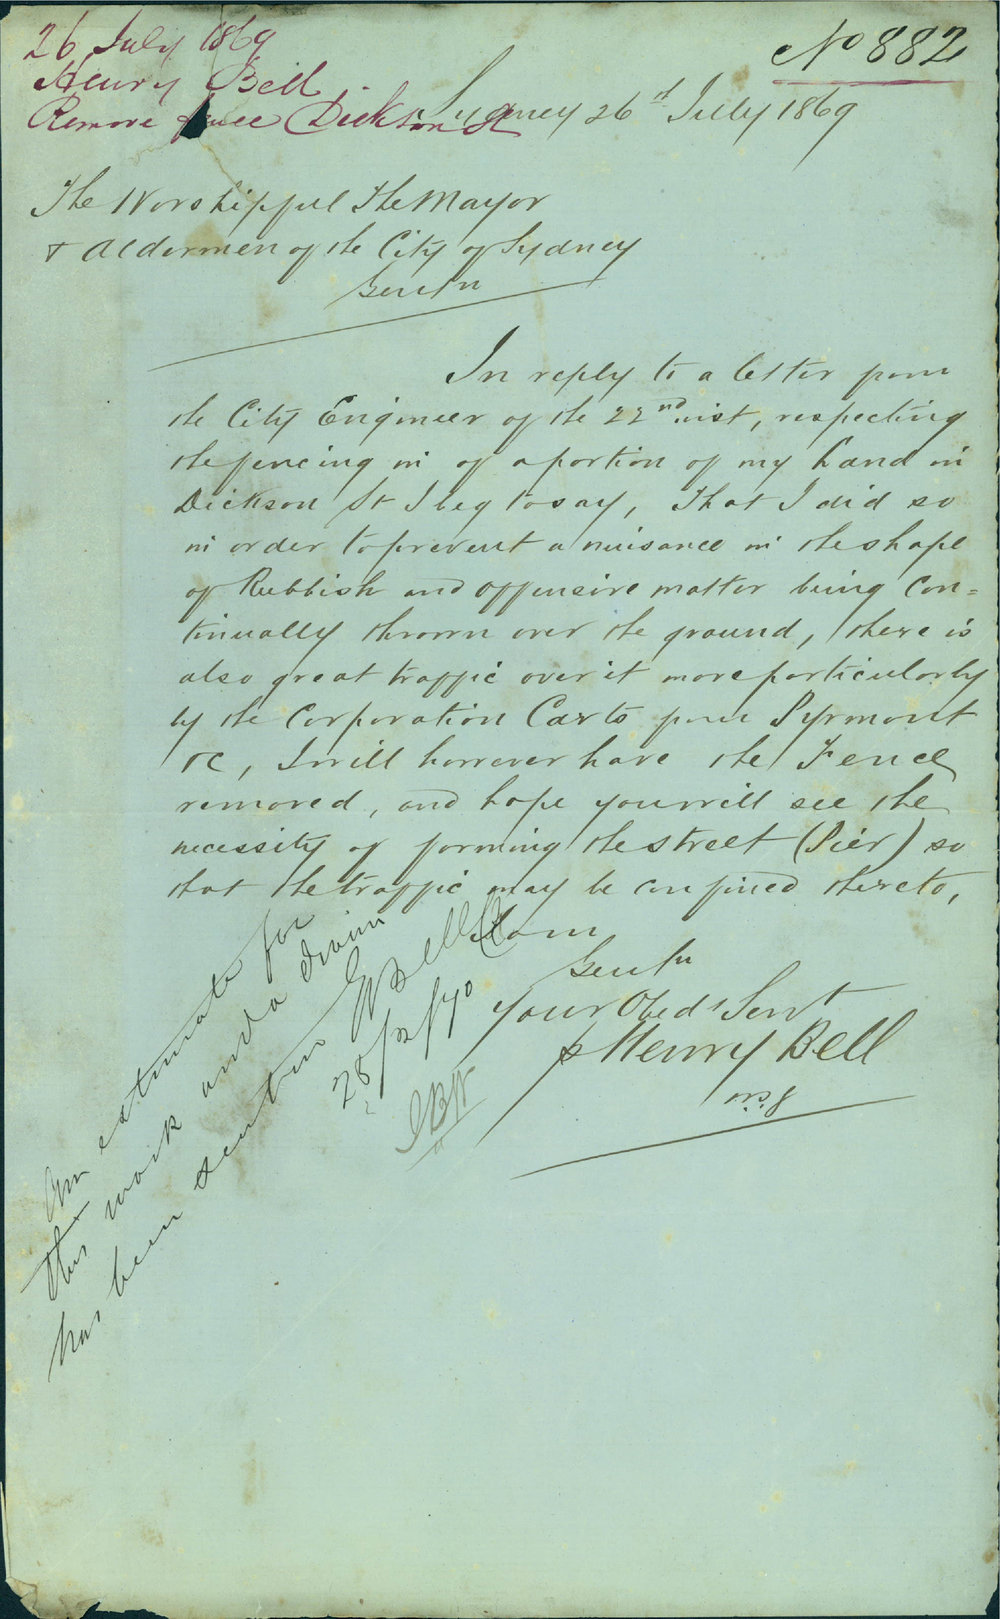 26 July 1869
Henry Bell
Remove fence Dickson St
No 882
Sydney 26th July 1869
The Worshipful The Mayor
& Aldermen of the City of Sydney
Gentn
In reply to a letter from
the City Engineer of the 22nd inst, respecting
the fencing in of a portion of my Land in
Dickson St I beg to say, That I did so
in order to prevent a nuisance in the shape
of Rubbish and offensive matter being con=
tinually thrown over the ground, there is
also great traffic over it more particularly
by the Corporation Carts from Pyrmont
&c, I will however have the Fence
removed, and hope you will see the
necessity of forming the street (Pier) so
that the traffic may be confined thereto,
I am
Gentn
Your Obedt Servt
Henry Bell
An estimate for
this work and a
has been sent in
E Bell CE
28/2/70